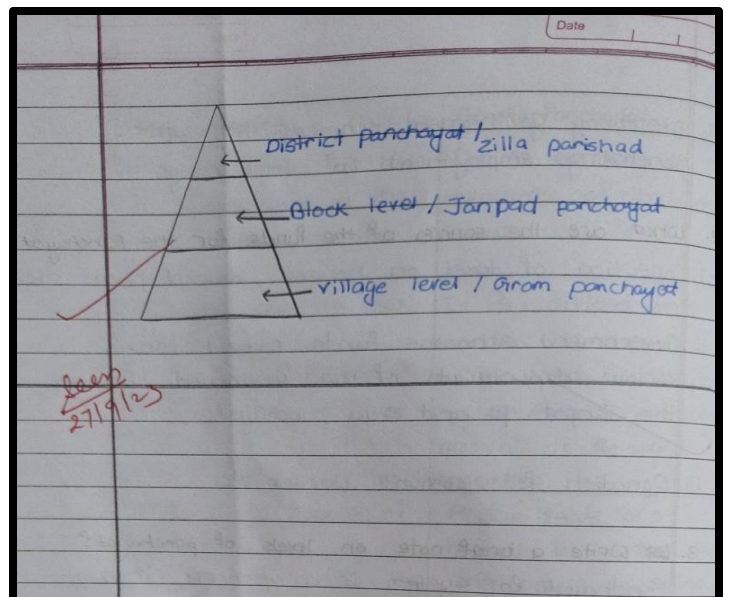 Date
District panchayat / zilla parishad
Block level / Janpad panchayat
village level / Gram panchayat
Seen
27/9/23